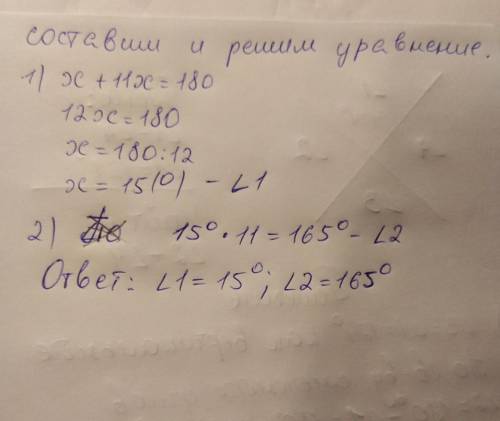 составим и решим уравнение.
1) x + 11x = 180
12x = 180
x = 180:12
x = 15(0) - ∠1
2) 15⁰ · 11 = 165⁰ - ∠2
Ответ: ∠1 = 15⁰; ∠2 = 165⁰